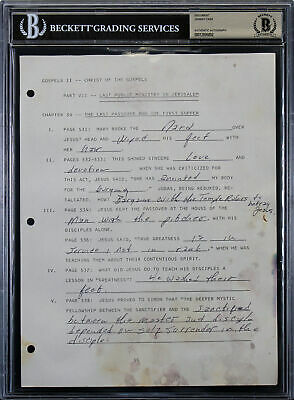 BECKETT GRADING SERVICES
BECKETT
DOCUMENT
JOHNNY CASH
AUTHENTIC AUTOGRAPH
GOSPELS II -- CHRIST OF THE GOSPELS
PART VII -- LAST PUBLIC MINISTRY IN JERUSALEM
CHAPTER 30 -- THE LAST PASSOVER AND THE FIRST SUPPER
I. PAGE 531: MARY BROKE THE Nard OVER
JESUS' HEAD AND Wiped His feet WITH
HER Hair
II. PAGES 532-533: THIS SHOWED SINCERE Love AND
devotion WHEN SHE WAS CRITICIZED FOR
THIS ACT, JESUS SAID, "SHE HAS Annointed MY BODY
FOR THE burying " JUDAS, BEING REBUKED, RE-
TALIATED. HOW? Bargains with the Temple Rulers to betray Jesus
III. PAGE 534: JESUS KEPT THE PASSOVER AT THE HOUSE OF THE
Man with the pitcher WITH HIS
DISCIPLES ALONE.
IV. PAGE 536: JESUS SAID, "TRUE GREATNESS is in
service not in rank " WHEN HE WAS
TEACHING THEM ABOUT THEIR CONTENTIOUS SPIRIT.
PAGE 537: WHAT DID JESUS DO TO TEACH HIS DISCIPLES A
LESSON IN "GREATNESS? He washed their
feet
V. PAGE 538: JESUS PROVED TO SIMON THAT "THE DEEPER MYSTIC
FELLOWSHIP BETWEEN THE SANCTIFIER AND THE Sanctified
between the master and disciple
depended on self surrender in the
disciple.